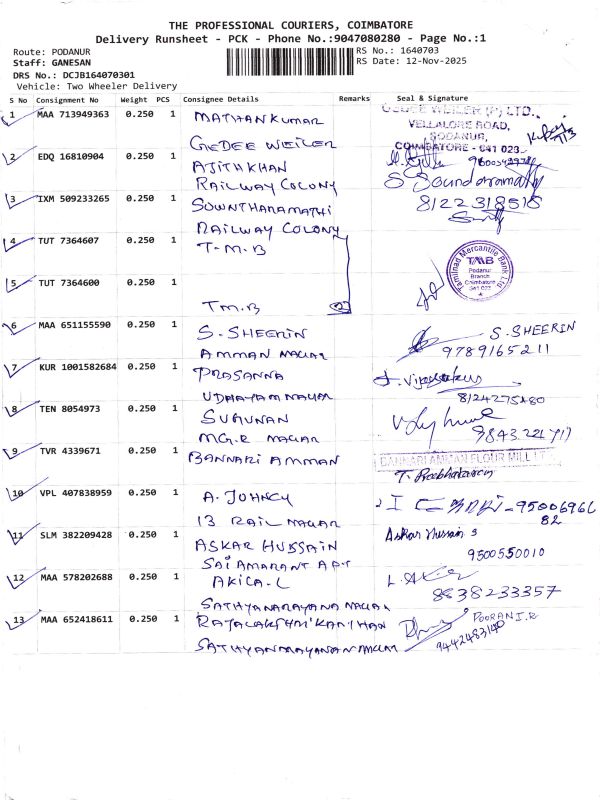 THE PROFESSIONAL COURIERS, COIMBATORE
Delivery Runsheet - PCK - Phone No.:9047080280 - Page No.:1
Route: PODANUR
RS No.: 1640703
Staff: GANESAN
RS Date: 12-Nov-2025
DRS No.: DCJB164070301
Vehicle: Two Wheeler Delivery
S No Consignment No Weight PCS Consignee Details Remarks Seal & Signature
1 MAA 713949363 0.250 1 MATHANKUMAR
GEDEE WEILER
GEDEE WEILER (P) LTD.,
VELLALORE ROAD,
PODANUR,
COIMBATORE - 641 023
2 EDQ 16810904 0.250 1 AJITHKHAN
RAILWAY COLONY
3 IXM 509233265 0.250 1 SOWNTHARAMATHI
RAILWAY COLONY
S Soundaramathy
8122318518
4 TUT 7364607 0.250 1 T-M-B
5 TUT 7364600 0.250 1
TM.B
Tamilnad Mercantile Bank Ltd
TMB
Podanur
Branch
Coimbatore
641 023
6 MAA 651155590 0.250 1 S. SHEERIN
AMMAN NAGAR
S. SHEERIN
9789165211
7 KUR 1001582684 0.250 1 PRASANNA
UDHAYAM NAGAR
8124275480
8 TEN 8054973 0.250 1 SUGUNAN
MG.R NAGAR
9TVR 4339671 0.250 1 BANNARI AMMAN
BANNARI AMMAN FLOUR MILL
T. Prabhakaran
10 VPL 407838959 0.250 1 A. JOHNCY
13 RAIL NAGAR
11 SLM 382209428 0.250 1 ASKAR HUSSAIN
SAI AMARANT APT
Askar Hussain
9500550010
12 MAA 578202688 0.250 1 AKILA-L
SATHYANARAYANA NAGAR
8838233357
13 MAA 652418611 0.250 1 RAJALAKSHMIKANTHAN
POORANI.R
9442483140